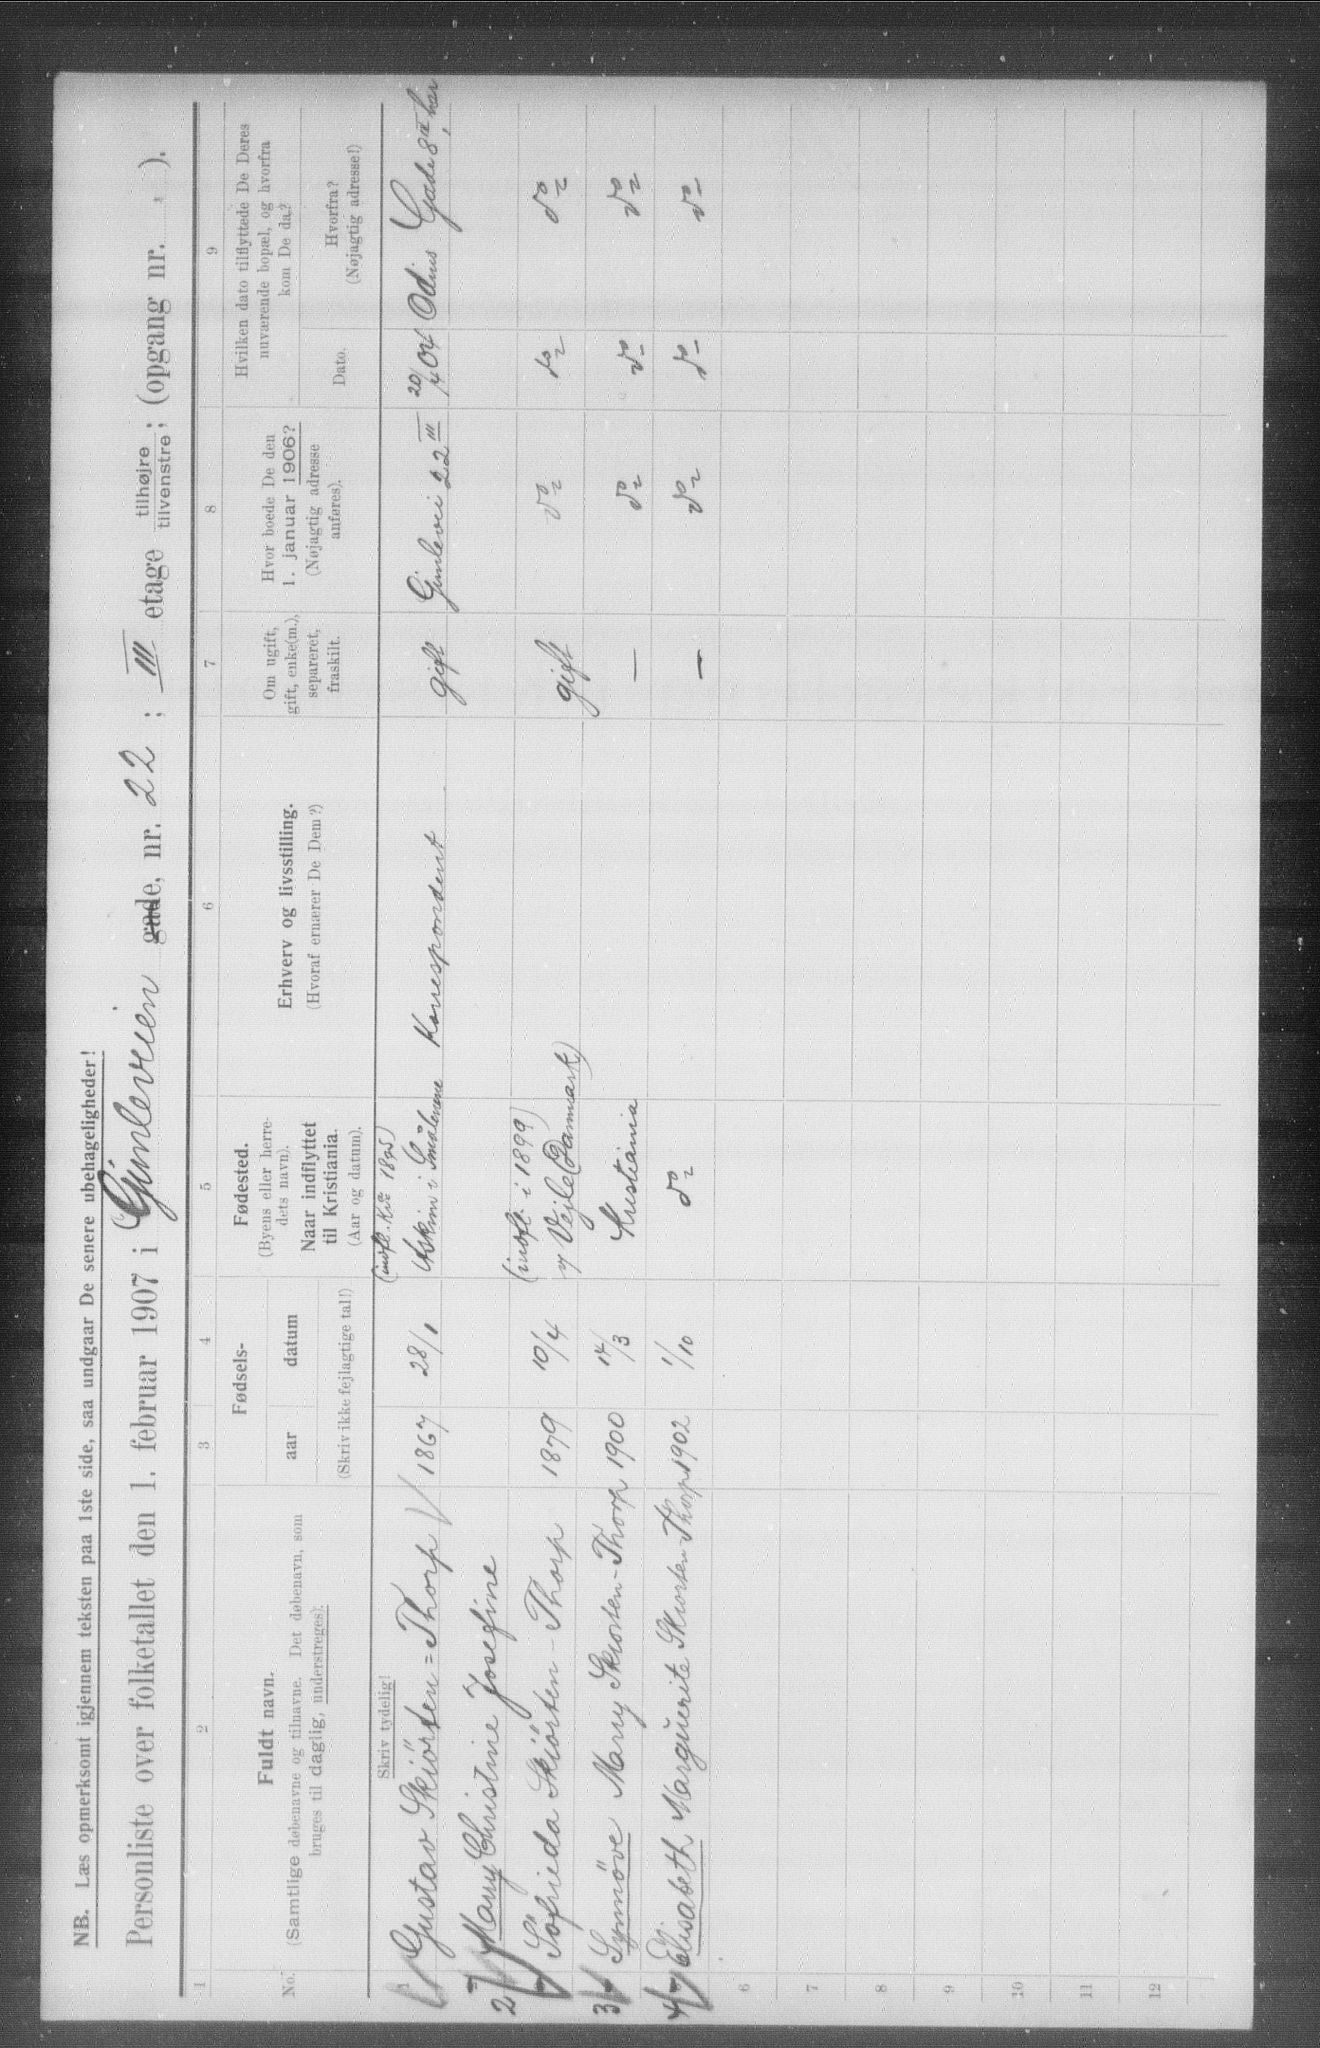 NB. Læs opmerksomt igjennem teksten paa 1ste side, saa undgaar De senere ubehageligheder!
Personliste over folketallet den 1. februar 1907 i Gimleveien gade, nr. 22; III etage tilhøjre tilvenstre; (opgang nr. „ ).
1 2 3 4 5 6 7 8 9
No.
Fuldt navn.
(Samtlige døbenavne og tilnavne. Det døbenavn, som
bruges til daglig, understreges).
Fødsels-
aar datum
(Skriv ikke fejlagtige tal!)
Fødested.
(Byens eller herre-
dets navn).
Naar indflyttet
til Kristiania.
(Aar og datum).
Erhverv og livsstilling.
(Hvoraf ernærer De Dem?)
Om ugift,
gift, enke(m.),
separeret,
fraskilt.
Hvor boede De den
1. januar 1906?
(Nøjagtig adresse
anføres).
Hvilken dato tilflyttede De Deres
nuværende bopæl, og hvorfra
kom De da?
Dato.
Hvorfra?
(Nøjagtig adresse!)
Skriv tydelig!
(indfl. Kra 1895)
1 Gustav Skiörten=Thorp 1867 28/1 Askim i Smålenene Korrespondent gift Gimlevei 22 III 20/4 04 Odins Gade 8 II her
2 Marry Christine Josefine
(indfl. i 1899)
Söfrieda Skiörten-Thorp 1879 10/4 Vejle (Danmark) gift do do do
3 Synnöve Marry Skiorten-Thorp 1900 14/3 Kristiania — do do do
4 Elisabeth Marguerite Skiorten-Thorp 1902 1/10 do — do do do
6
7
8
9
10
11
12